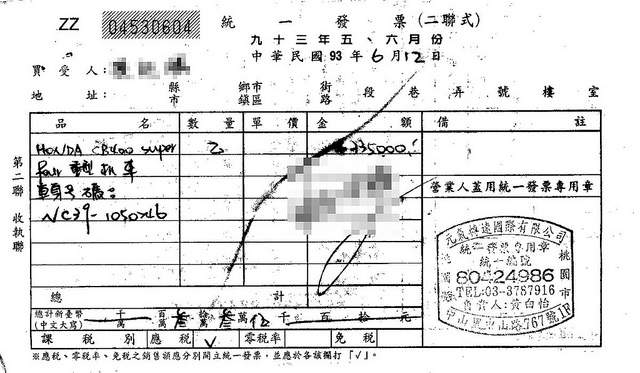 ZZ 04530604 統一發票(二聯式)
九十三年五、六月份
中華民國93年6月12日
買受人:
地址: 縣市 鄉鎮市區 街路 段 巷 弄 號 樓 室
品名 數量 單價 金額 備註
HONDA CB400 super
Four 重型機車
車身號碼:
NC39-1050
營業人蓋用統一發票專用章
第二聯 收執聯
國際有限公司
統一發票專用章
統一編號
80424986
桃園市
TEL:03-3767916
負責人:黃白怡
中山路767號1F
總計
總計新臺幣
(中文大寫) 千萬 百萬 叁 拾萬 叁 萬 伍 千 百 拾 元
課稅別 應稅 √ 零稅率 免稅
※應稅、零稅率、免稅之銷售額應分別開立統一發票,並應於各該欄打「√」。